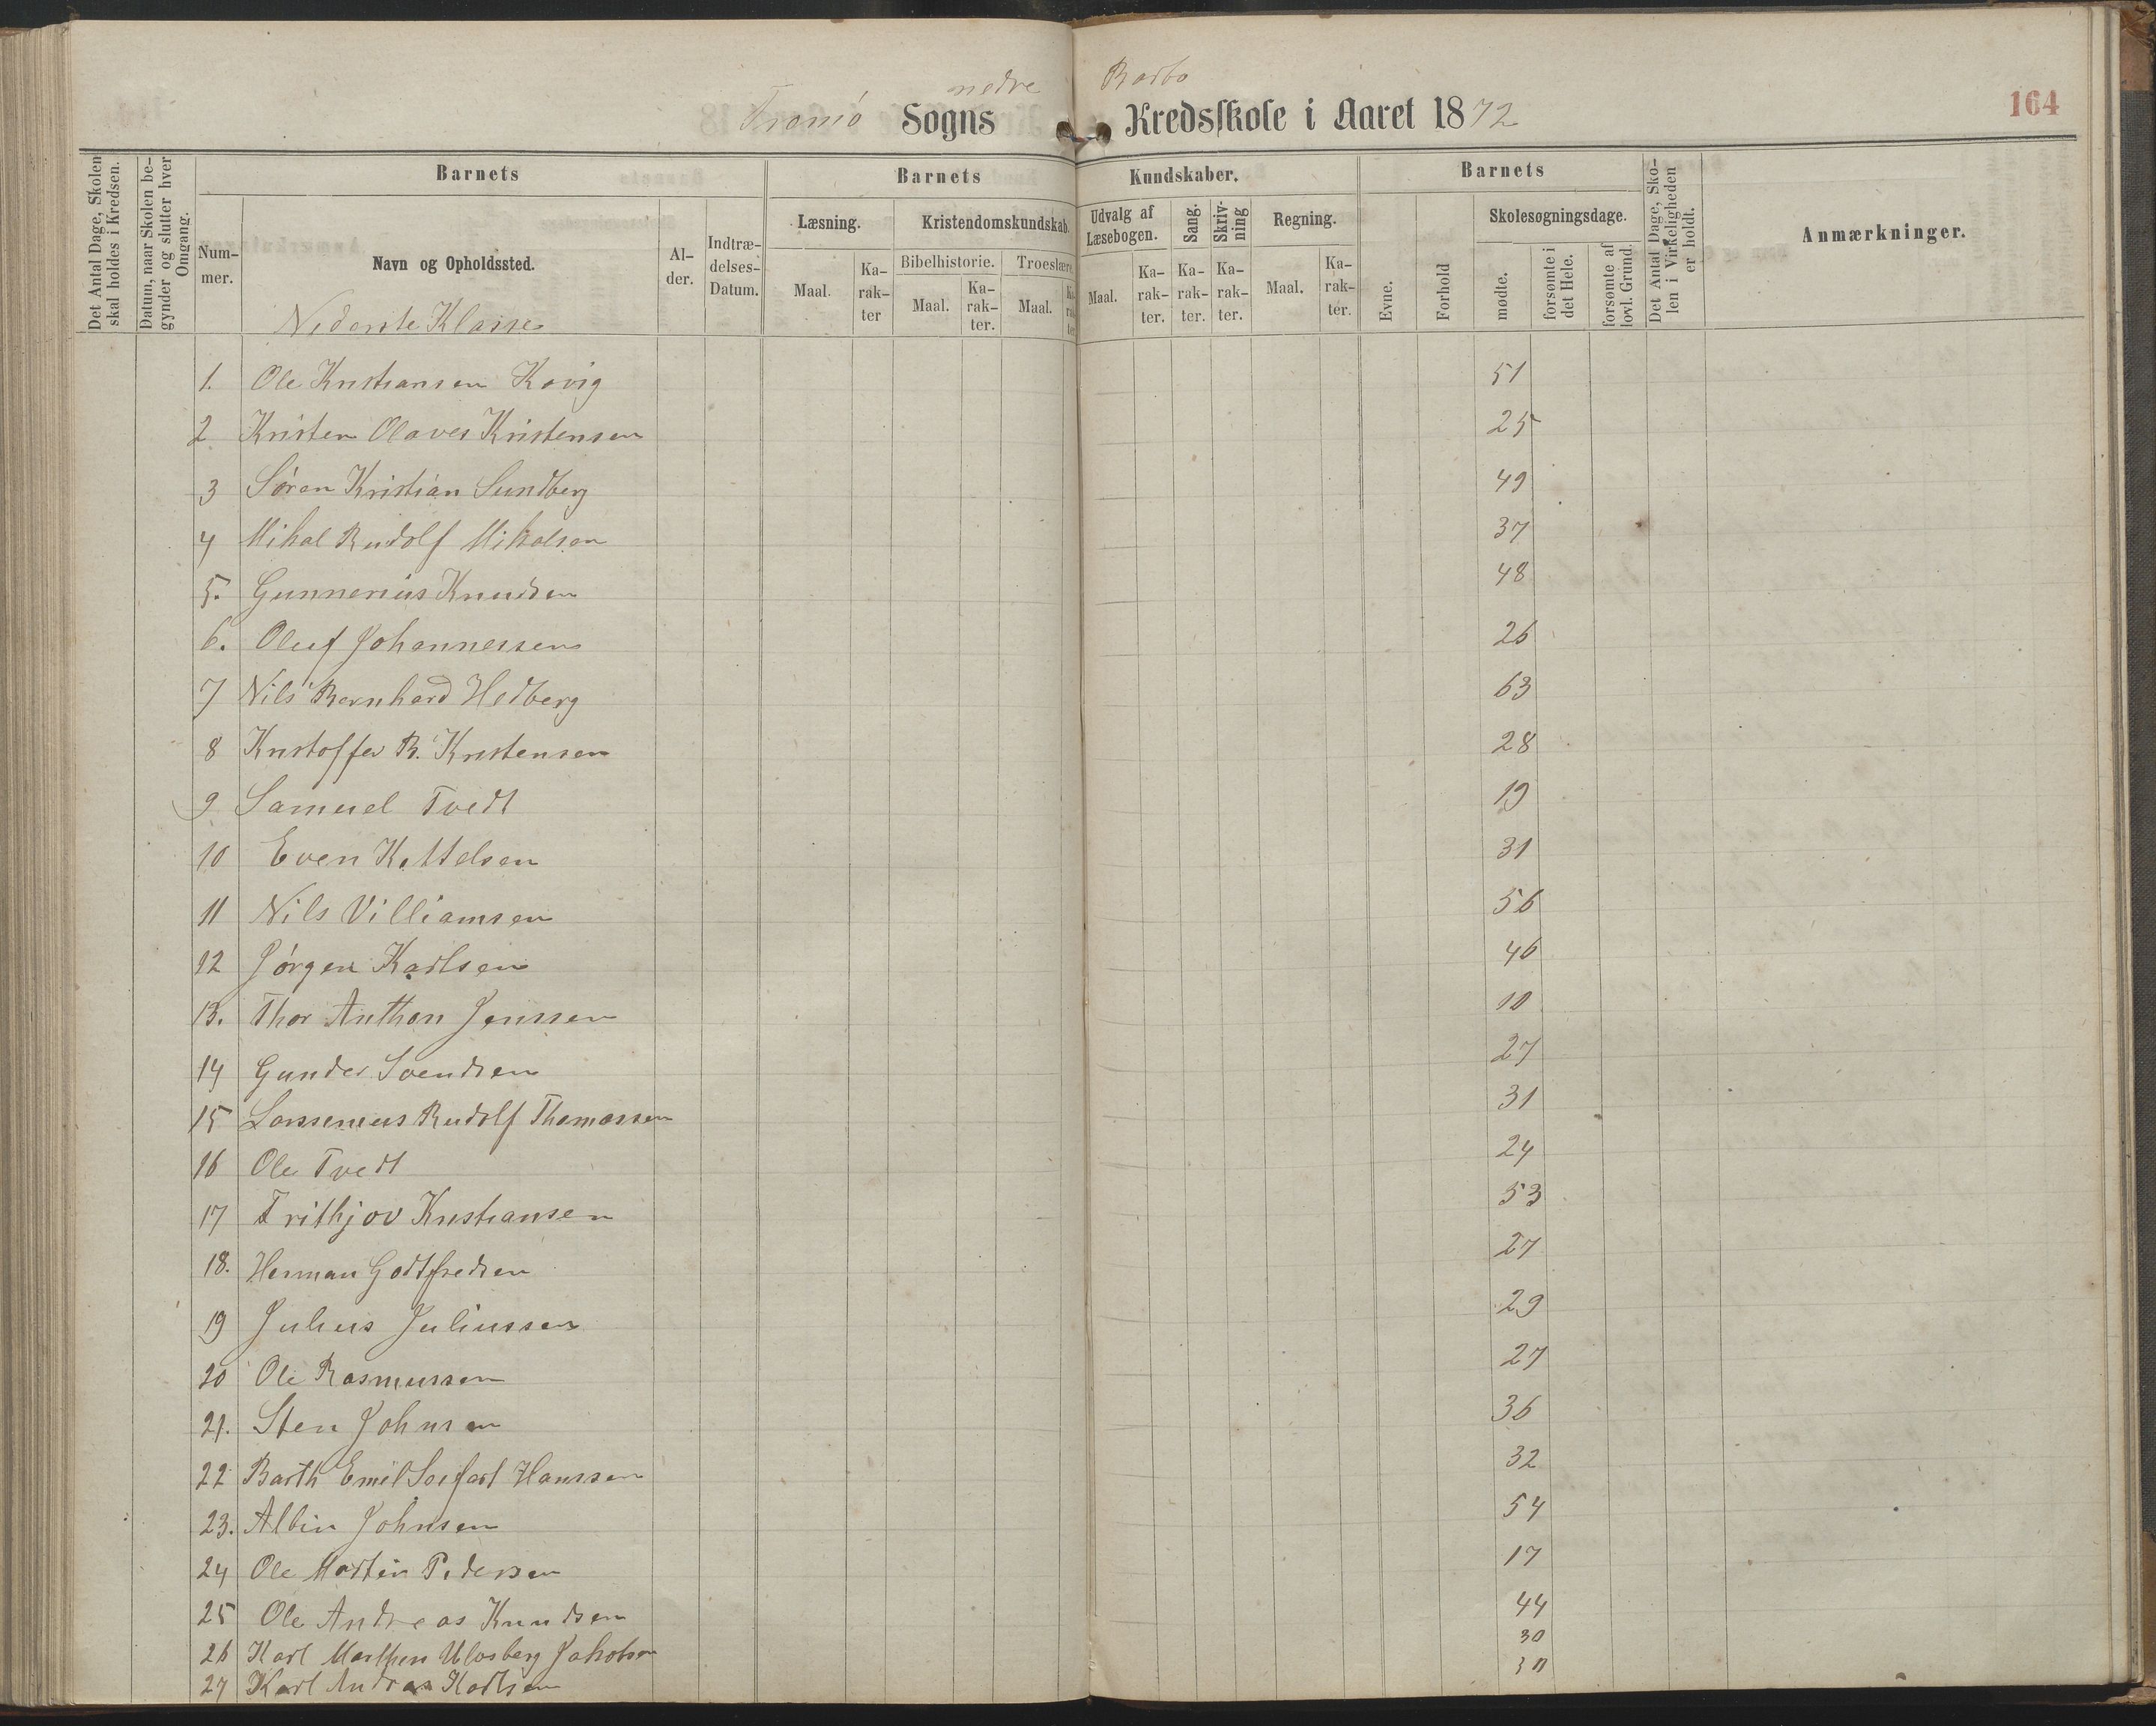 nedre Barbo
Tromö Sogns Kredsskole i Aaret 1872
164
Det Antal Dage, Skolen skal holdes i Kredsen.
Datum, naar Skolen begynder og slutter hver Omgang.
Barnets
Nummer.
Navn og Opholdssted.
Alder.
Indtrædelses-Datum.
Barnets Kundskaber.
Læsning.
Maal.
Karakter
Kristendomskundskab.
Bibelhistorie.
Maal.
Karakter.
Troeslære
Maal.
Udvalg af Læsebogen.
Maal.
Karakter.
Sang.
Karakter.
Skrivning
Karakter.
Regning.
Maal.
Karakter.
Barnets
Evne.
Forhold
Skolesøgningsdage.
mødte.
forsømte i det Hele.
forsømte af lovl. Grund.
Det Antal Dage, Skolen i Virkeligheden er holdt.
Anmærkninger.
Nederste Klasse
1. Ole Kristiansen Kovig 51
2 Kristen Olaves Kristensen 25
3 Sören Kristian Sundberg 49
4 Mikal Rudolf Mikalsen 37
5. Gunnerius Knudsen 48
6. Oluf Johannessen 26
7 Nils Bernhard Hedberg 63
8 Kristoffer B. Kristensen 28
9 Samuel Tvedt 19
10 Even Kettelsen 31
11 Nils Villiamsen 56
12 Jörgen Karlsen 46
13. Thor Anthon Jenssen 10
14 Gunder Svendsen 27
15 Lassenius Rudolf Thomassen 31
16 Ole Tvedt 24
17 Frithjov Kristiansen 53
18. Herman Godtfredsen 27
19 Julius Juliussen 29
20 Ole Rasmussen 27
21. Sten Johnsen 36
22 Barth Emil Hanssen 32
23. Albin Johnsen 54
24 Ole Martin Pedersen 17
25 Ole Andreas Knudsen 44
26 Karl Jakobsen 30
27 Karl Andreas Karlsen 30